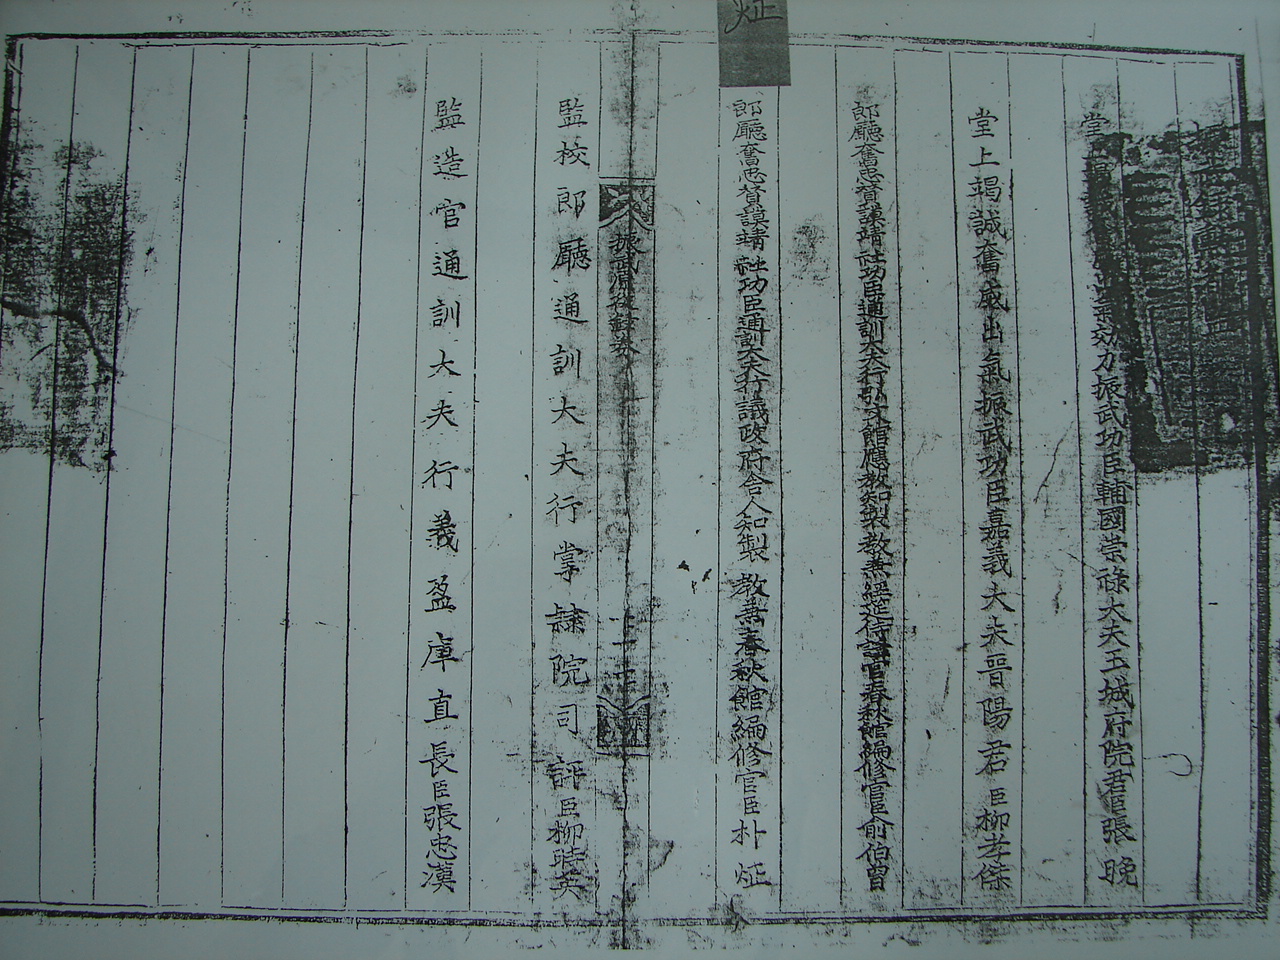 炡
堂
氣効力振武功臣輔國崇祿大夫玉城府院君臣張晚
堂上竭誠奮威出氣振武功臣嘉義大夫晉陽君臣柳孝傑
郎廳奮忠贊謨靖社功臣通訓大夫行弘文館應教知製教兼經筵侍講官春秋館編修官臣俞伯曾
郎廳奮忠贊謨靖社功臣通訓大夫行議政府舍人知製教兼春秋館編修官臣朴炡
振武
監校郎廳通訓大夫行掌隸院司評臣柳時英
監造官通訓大夫行義盈庫直長臣張忠漢